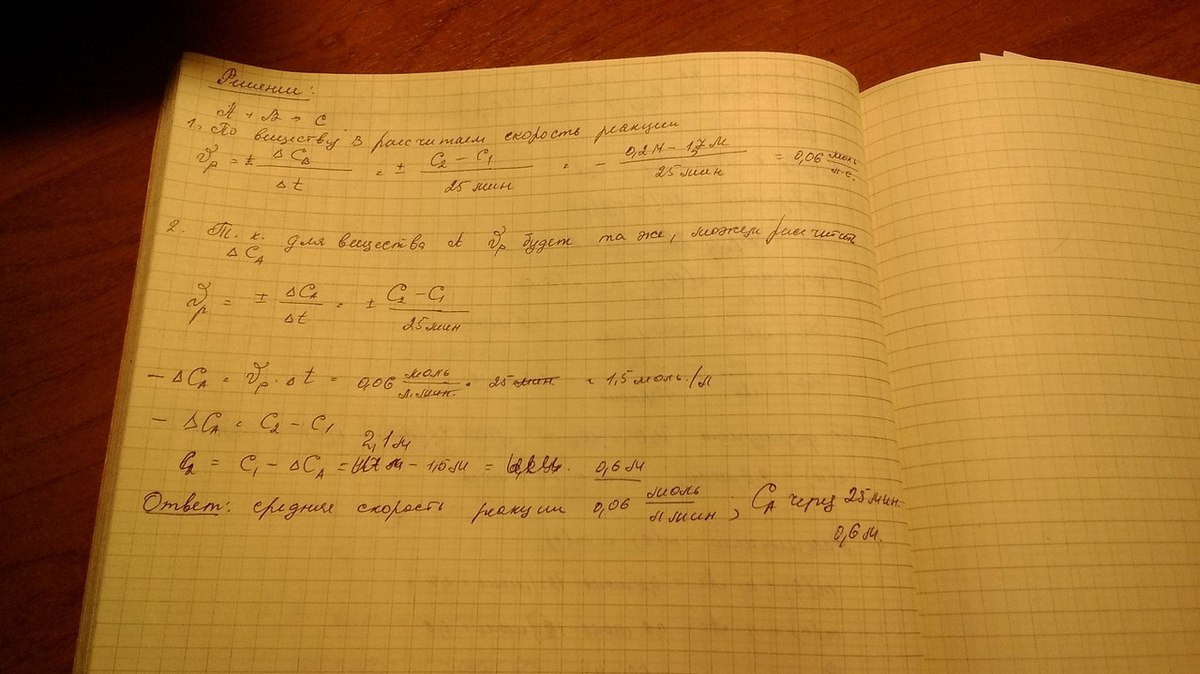 Решение:
A + B → C
1. По веществу B рассчитаем скорость реакции
V̄р = ± ΔCв / Δt = ± C₂ - C₁ / 25 мин = - 0,2 М - 1,7 М / 25 мин = 0,06 моль / л.с.
2. Т. к. для вещества A V̄р будет та же, можем рассчитать
ΔCA
V̄р = ± ΔCA / Δt = ± C₂ - C₁ / 25 мин
- ΔCA = V̄р · Δt = 0,06 моль / л.мин. · 25 мин = 1,5 моль/л
- ΔCA = C₂ - C₁
2,1 м
C₂ = C₁ - ΔCA = - 1,5 м = 0,6 м
Ответ: средняя скорость реакции 0,06 моль / л мин ; CA через 25 мин.
0,6 м.